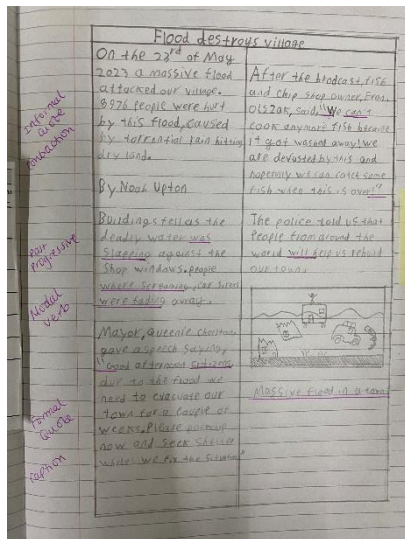 Flood destroys village
On the 23rd of May
2023 a massive flood
attacked our village.
8976 people were hurt
by this flood, caused
by torrential rain hitting
dry land.
By Noah Upton
Buildings fell as the
deadly water was
slapping against the
shop windows. people
where screaming, car sirens
were fading away.
Mayor, Queenie
gave a speech saying,
"Good afternoon citizens
due to the flood we
need to evacuate our
town for a couple of
weeks. Please
now and seek shelter
we fix the situation"
After the brodcast, fish
and chip shop owner,
said, "We can't
cook anymore fish because
it got washed away! We
are devasted by this and
hopefully we can catch some
fish when this is over!"
The police told us that
people from around the
world will help us rebuild
our town.
Massive flood in a town
Informal
quote
contraction
Past
progressive
Modal
verb
Formal
quote
caption